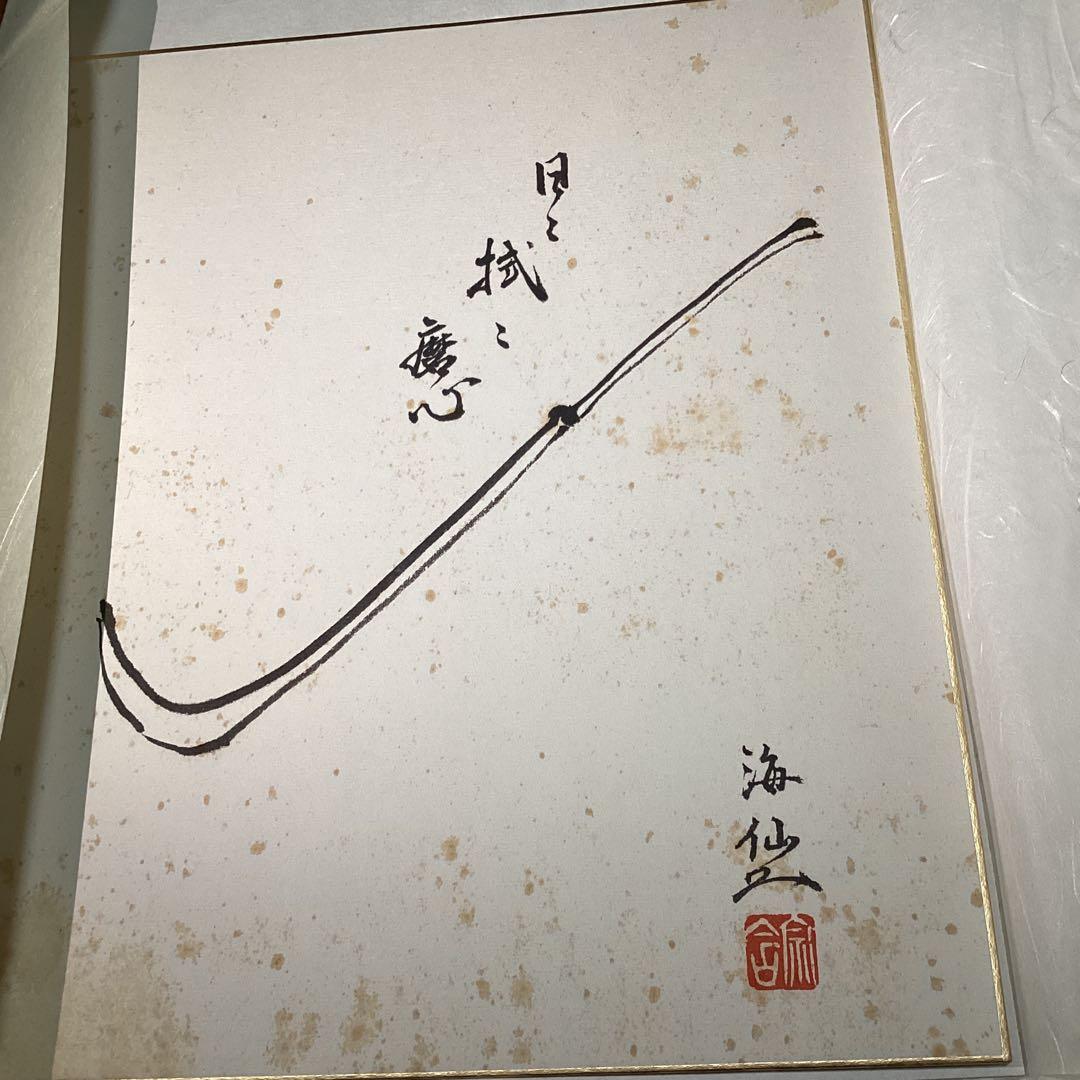 日々
拭々
磨心
海仙